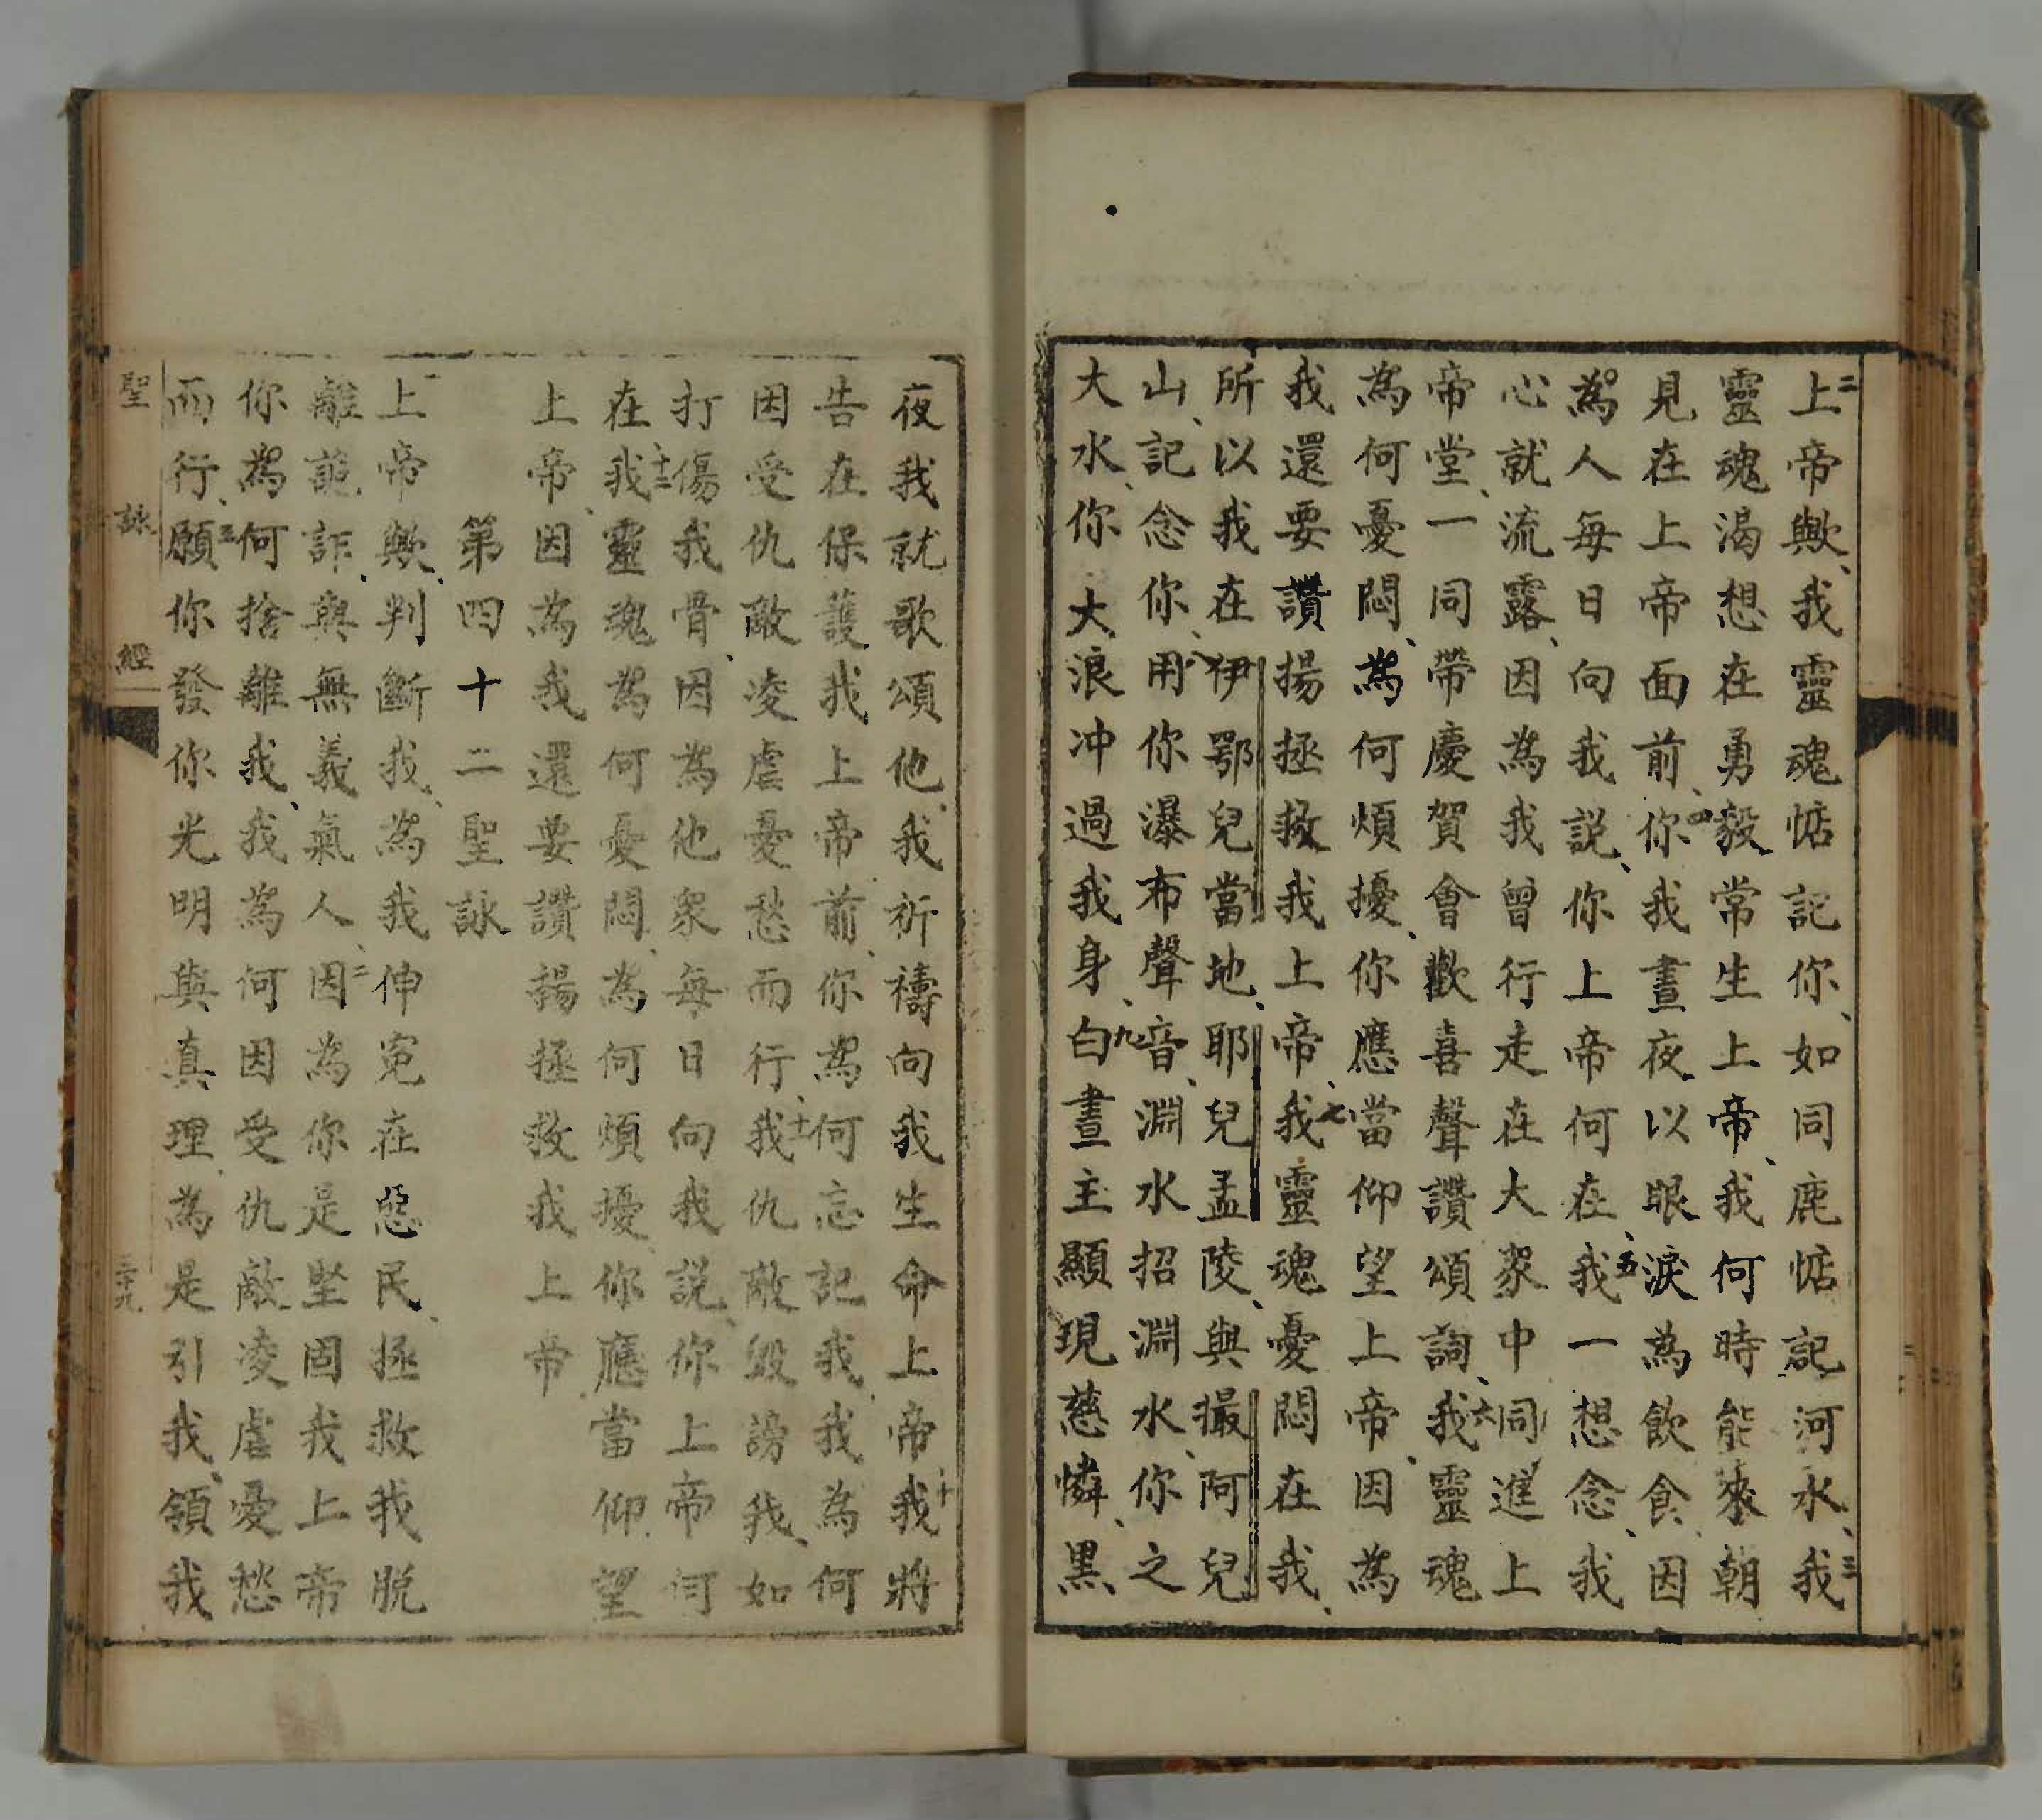 二上帝歟、我靈魂惦記你、如同鹿惦記河水、三我
靈魂渴想在勇毅常生上帝、我何時能來朝
見在上帝面前、四你我晝夜以眼淚為飲食、因
為人每日向我説、你上帝何在、五我一想念、我
心就流露、因為我曾行走在大衆中同進上
帝堂、一同帶慶賀會歡喜聲讚頌詞、六我靈魂
為何憂悶、為何煩擾、你應當仰望上帝、因為
我還要讚揚拯救我上帝、七我靈魂憂悶在我、
所以我在伊鄂兒當地、耶兒孟陵、與撮阿兒
山、記念你、八用你瀑布聲音、淵水招淵水、你之
大水、你大浪冲過我身、九白晝主顯現慈憐、黑
夜我就歌頌他、我祈禱向我生命上帝、十我將
告在保護我上帝前、你為何忘記我、我為何
因受仇敵凌虐憂愁而行、十一我仇敵毀謗我、如
打傷我骨、因為他衆每日向我説、你上帝何
在、十二我靈魂為何憂悶、為何煩擾、你應當仰望
上帝、因為我還要讚揚拯救我上帝、
第四十二聖詠
一上帝歟、判斷我、為我伸寃在惡民、拯救我脱
離詭詐、與無義氣人、二因為你是堅固我上帝
你為何捨離我、我為何因受仇敵凌虐憂愁
而行、三願你發你光明與真理、為是引我、領我
聖詠經
三十九